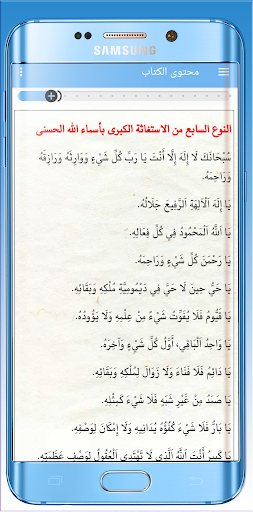 SAMSUNG
محتوى الكتاب
النوع السابع من الاستغاثة الكبرى بأسماء الله الحسنى
سُبْحَانَكَ لَا إِلَهَ إِلَّا أَنْتَ يَا رَبَّ كُلِّ شَيْءٍ وَوَارِثَهُ وَرَازِقَهُ
وَرَاحِمَهُ.
يَا إِلَهَ الْآلِهَةِ الرَّفِيعُ جَلَالُهُ.
يَا اللَّهُ الْمَحْمُودُ فِي كُلِّ فِعَالِهِ.
يَا رَحْمَنَ كُلِّ شَيْءٍ وَرَاحِمَهُ.
يَا حَيُّ حِينَ لَا حَيَّ فِي دَيْمُومِيَّةِ مُلْكِهِ وَبَقَائِهِ.
يَا قَيُّومُ فَلَا يَفُوتُ شَيْءٌ مِنْ عِلْمِهِ وَلَا يَؤُودُهُ.
يَا وَاحِدُ الْبَاقِي، أَوَّلَ كُلِّ شَيْءٍ وَآخِرَهُ.
يَا دَائِمُ فَلَا فَنَاءَ وَلَا زَوَالَ لِمُلْكِهِ وَبَقَائِهِ.
يَا صَمَدُ مِنْ غَيْرِ شَبَهٍ فَلَا شَيْءَ كَمِثْلِهِ.
يَا بَارُّ فَلَا شَيْءَ كُفُؤُهُ يُدَانِيهِ وَلَا إِمْكَانَ لِوَصْفِهِ.
يَا كَبِيرُ أَنْتَ اللَّهُ الَّذِي لَا تَهْتَدِي الْعُقُولُ لِوَصْفِ عَظَمَتِهِ.